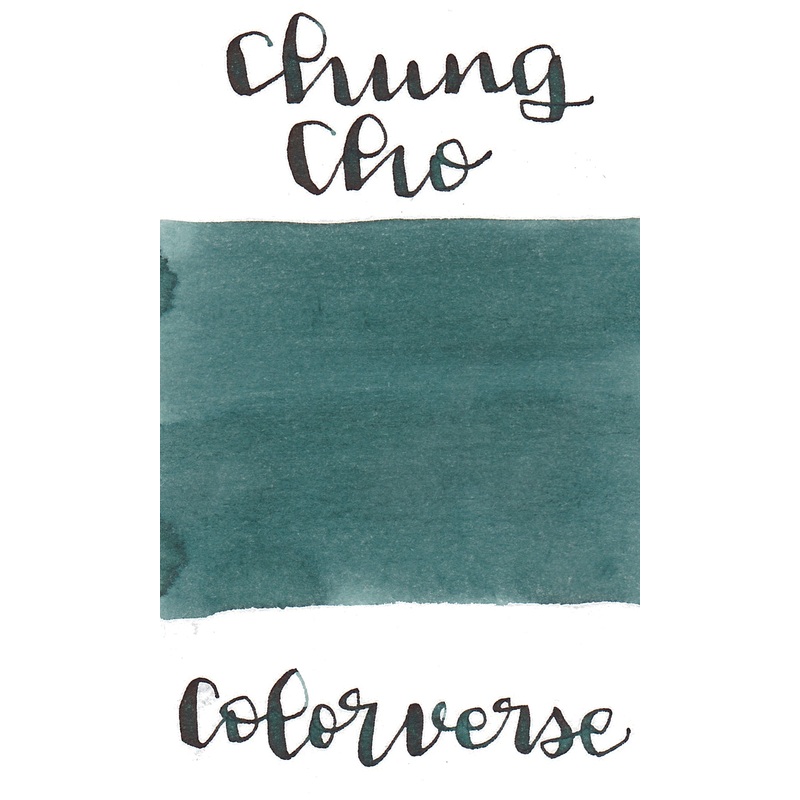 Chung
Cho
Colorverse